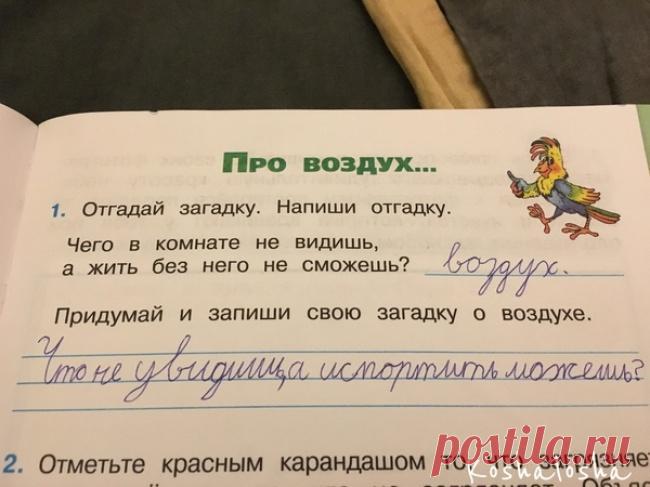 Про воздух...
1. Отгадай загадку. Напиши отгадку.
Чего в комнате не видишь,
а жить без него не сможешь? воздух.
Придумай и запиши свою загадку о воздухе.
Что не увидищ,а испортить можешь?
2. Отметьте красным карандашом то, что загрязняет
postila.ru
Koshatosha